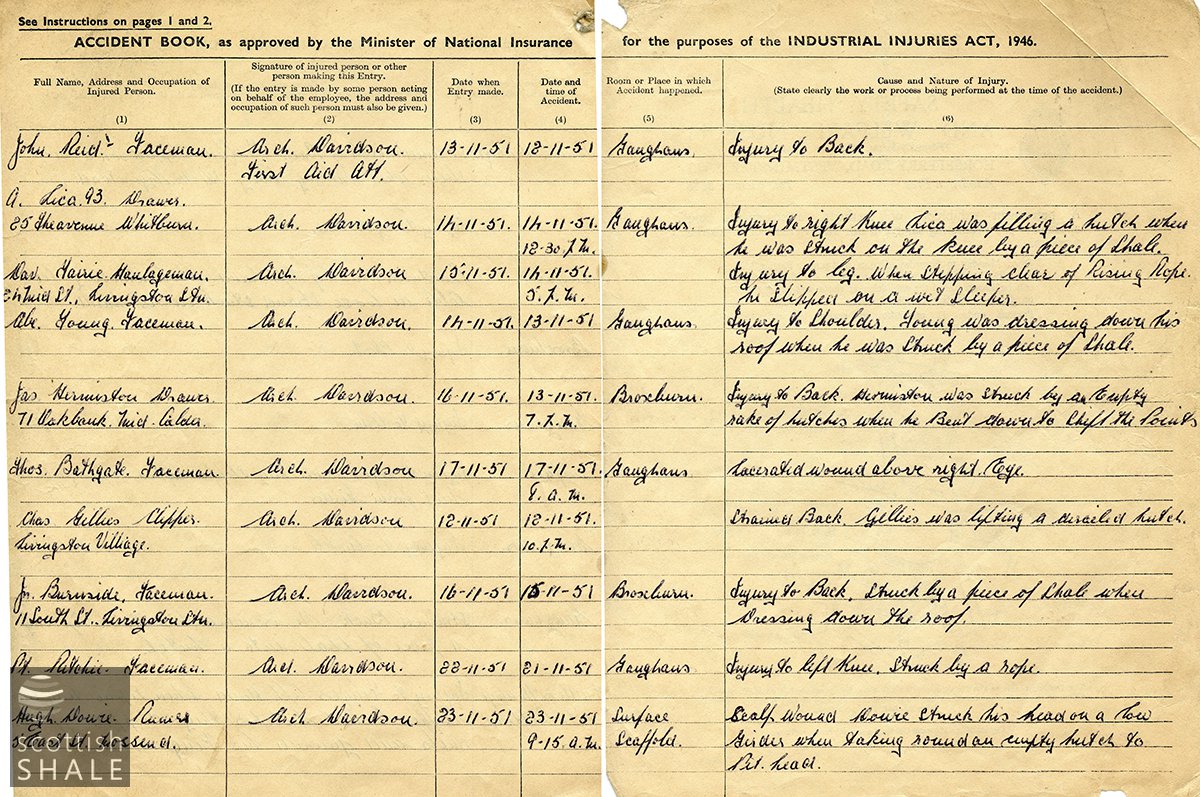 See Instructions on pages 1 and 2.
ACCIDENT BOOK, as approved by the Minister of National Insurance for the purposes of the INDUSTRIAL INJURIES ACT, 1946.
Full Name, Address and Occupation of Injured Person.
(1)
Signature of injured person or other person making this Entry.
(If the entry is made by some person acting on behalf of the employee, the address and occupation of such person must also be given.)
(2)
Date when Entry made.
(3)
Date and time of Accident.
(4)
Room or Place in which Accident happened.
(5)
Cause and Nature of Injury.
(State clearly the work or process being performed at the time of the accident.)
(6)
John. Reid. Faceman. Arch. Davidson. 13-11-51 12-11-51 Gaughans. Injury to Back.
First Aid Att.
A. Lica. 93. Drawer.
25 The avenue Whitburn. Arch. Davidson 14-11-51. 14-11-51. Gaughans. Injury to right Knee Lica was filling a hutch when
12-30. P.M. he was struck on the knee by a piece of Shale.
Dav. Fairie Haulageman. Arch. Davidson 15-11-51. 14-11-51. Injury to leg. When Stepping clear of Rising Rope.
St., Livingston Stn. 5. P.M. he Slipped on a wet Sleeper.
Abr. Young. Faceman. Arch. Davidson. 14-11-51. 13-11-51 Gaughans Injury to Shoulder. Young was dressing down his
roof when he was Struck by a piece of Shale.
Jas Hermiston Drawer. Arch. Davidson. 16-11-51. 13-11-51. Broxburn. Injury to Back. Hermiston was Struck by an Empty
71 Oakbank. Mid. Calder. 7. P.M. rake of hutches when he Bent down to Shift the Points
Thos. Bathgate. Faceman. Arch. Davidson 17-11-51 17-11-51. Gaughans. Lacerated wound above right. Eye.
8. a.m.
Chas Gillies Clipper. Arch. Davidson 12-11-51 12-11-51. Strained Back. Gillies was lifting a derailed hutch.
Livingston Villiage. 10. P.M.
Jn. Burnside, Faceman. Arch. Davidson. 16-11-51 15-11-51 Broxburn. Injury to Back. Struck by a piece of Shale when
11 South St., Livingston Stn. Dressing down the roof.
Ritchie. Faceman. Arch. Davidson. 22-11-51 21-11-51. Gaughans Injury to left Knee. Struck by a rope.
Hugh Dowie. Arch Davidson. 23-11-51 23-11-51 Surface Scalp Wound Dowie Struck his head on a low
East St. Mossend. 9-15. a.m. Scaffold. Girder when taking round an empty hutch to
Pit. head.
scottish
SHALE